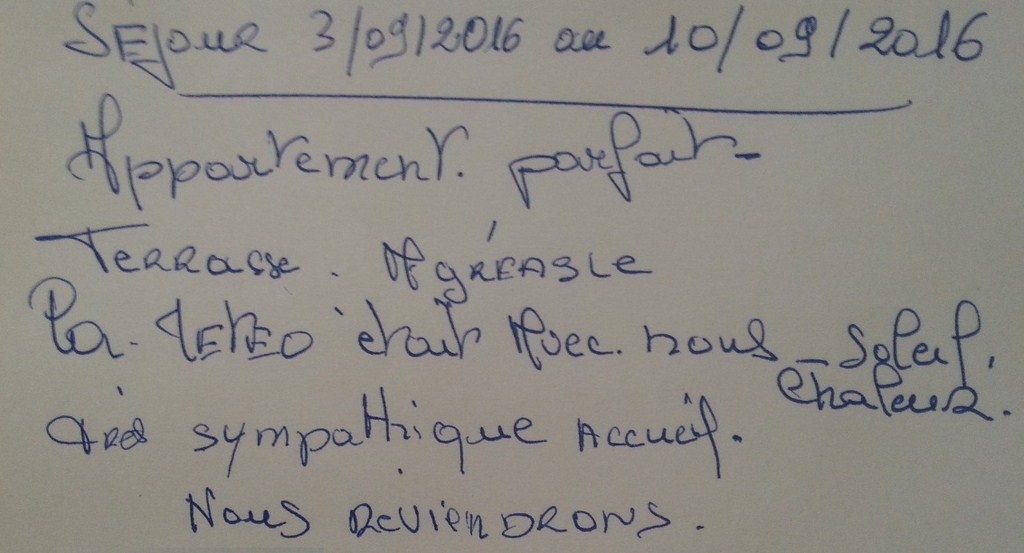 Séjour 3/09/2016 au 10/09/2016
Appartement. parfait -
Terrasse. Agréable
La. METEO était Avec. nous - Soleil,
Chaleur.
très sympathique Accueil.
Nous Reviendrons.